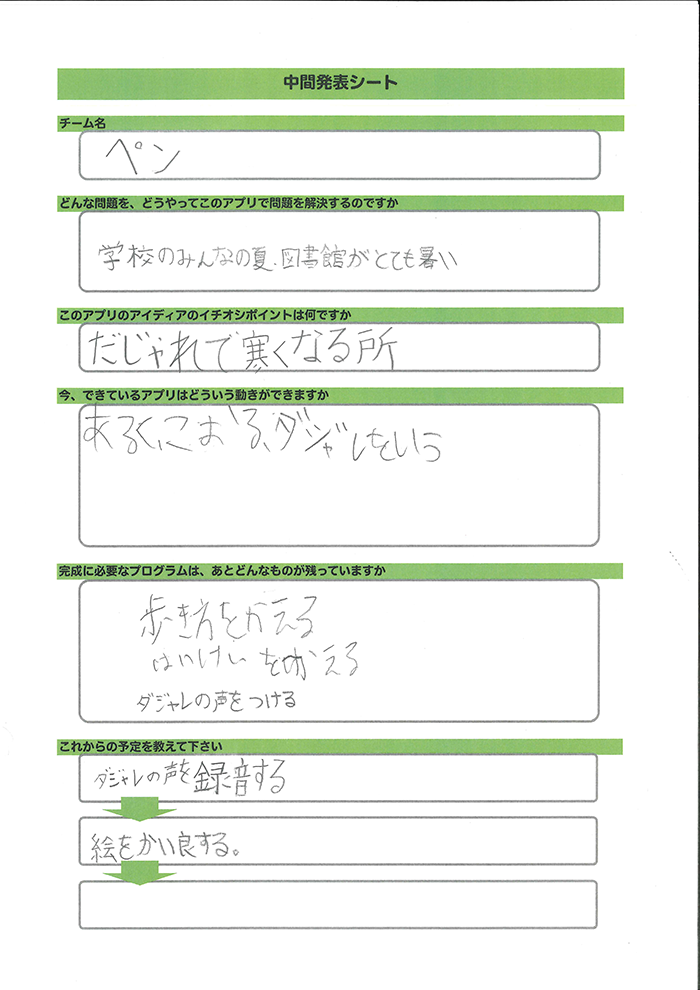 中間発表シート
チーム名
ペン
どんな問題を、どうやってこのアプリで問題を解決するのですか
学校のみんなの夏、図書館がとても暑い
このアプリのアイディアのイチオシポイントは何ですか
だじゃれで寒くなる所
今、できているアプリはどういう動きができますか
あるく、こおる、ダジャレをいう
完成に必要なプログラムは、あとどんなものが残っていますか
歩き方をかえる
はいけいをかえる
ダジャレの声をつける
これからの予定を教えて下さい
ダジャレの声を録音する
絵をかい良する。